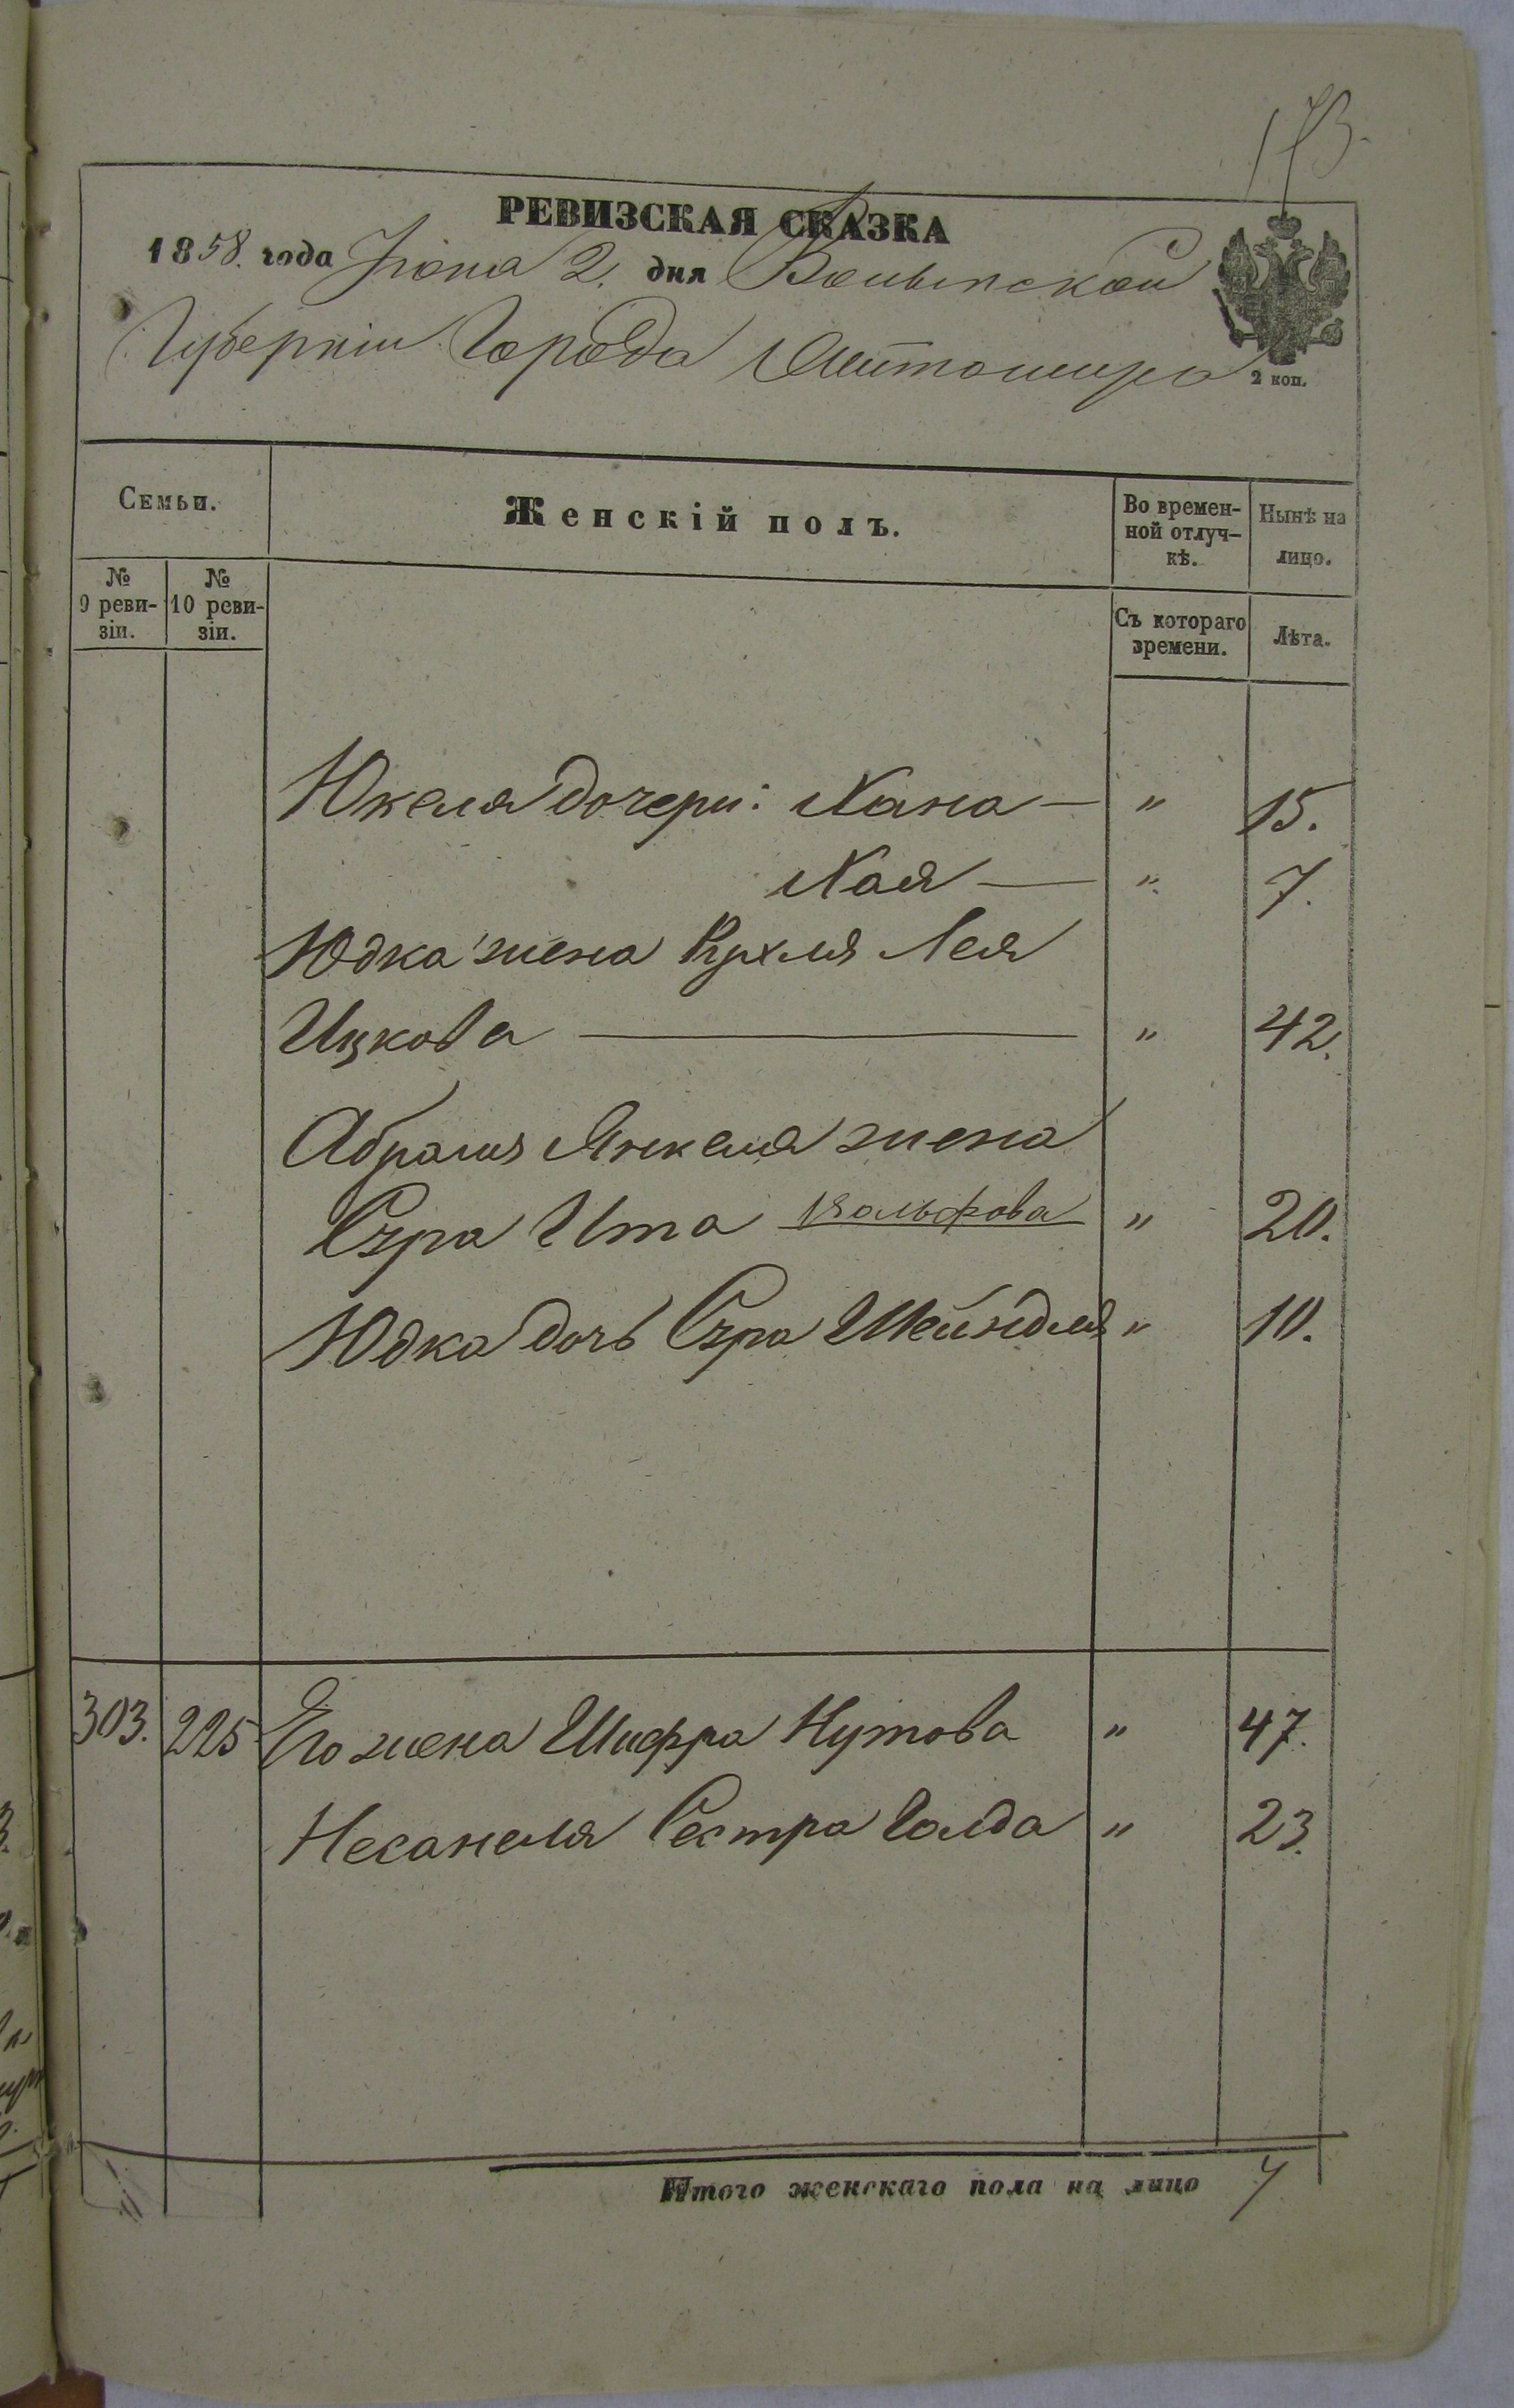 173.
РЕВИЗСКАЯ СКАЗКА
1858. года Іюня 2. дня Волынской
Губерніи Города Житомира
2 коп.
Семьи.
Женскій полъ.
Во времен-
ной отлуч-
кѣ.
Нынѣ на
лицо.
№
9 реви-
зіи.
№
10 реви-
зіи.
Съ котораго
времени.
Лѣта.
Юкеля дочери: Хана — " 15.
Хая — " 7.
Юдка жена Рухля Лея
Ицкова — " 42.
Абрамъ Янкеля жена
Сура Ита Вольфова " 20.
Юдка дочь Сура Шейндля " 10.
303. 225 Его жена Шифра Нутова " 47.
Несанеля Сестра Голда " 23.
Итого женскаго пола на лицо 7